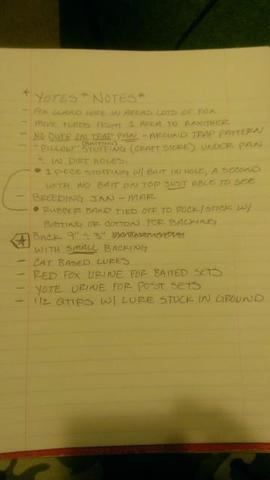 * YOTES "NOTES" *
- FOX GLAND LURE IN AREAS LOTS OF FOX
- MOVE TURDS FROM 1 AREA TO ANOTHER
- NO DIRT ON TRAP PAN - AROUND TRAP PATTERN
- "PILLOW" STUFFING (CRAFT STORE) UNDER PAN
(BATTING)
& IN DIRT HOLES.
• 1 PIECE STUFFING W/ BAIT IN HOLE, A SECOND
WITH NO BAIT ON TOP JUST ABLE TO SEE
- BREEDING JAN - MAR
• RUBBER BAND TIED OFF TO ROCK/STICK W/
BATTING OR COTTON FOR BACKING
BACK 9"
WITH SMALL BACKING
- CAT BASED LURES
- RED FOX URINE FOR BAITED SETS
- YOTE URINE FOR POST SETS
- 1/2 QTIPS W/ LURE STUCK IN GROUND